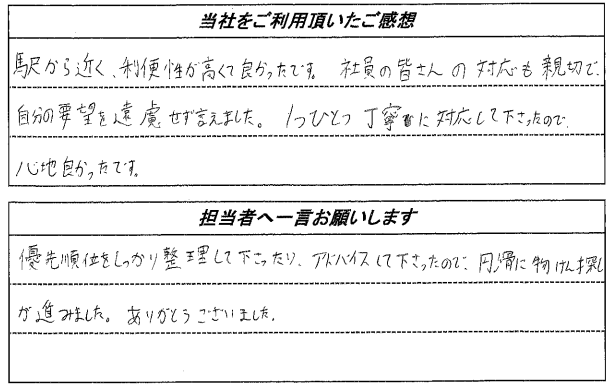 当社をご利用頂いたご感想
駅から近く、利便性が高くて良かったです。 社員の皆さんの対応も親切で、
自分の要望を遠慮せず言えました。 1つひとつ丁寧に対応して下さったので
心地良かったです。
担当者へ一言お願いします
優先順位をしっかり整理して下さったり、アドバイスして下さったので、円滑に物けん探し
が進みました。ありがとうございました。